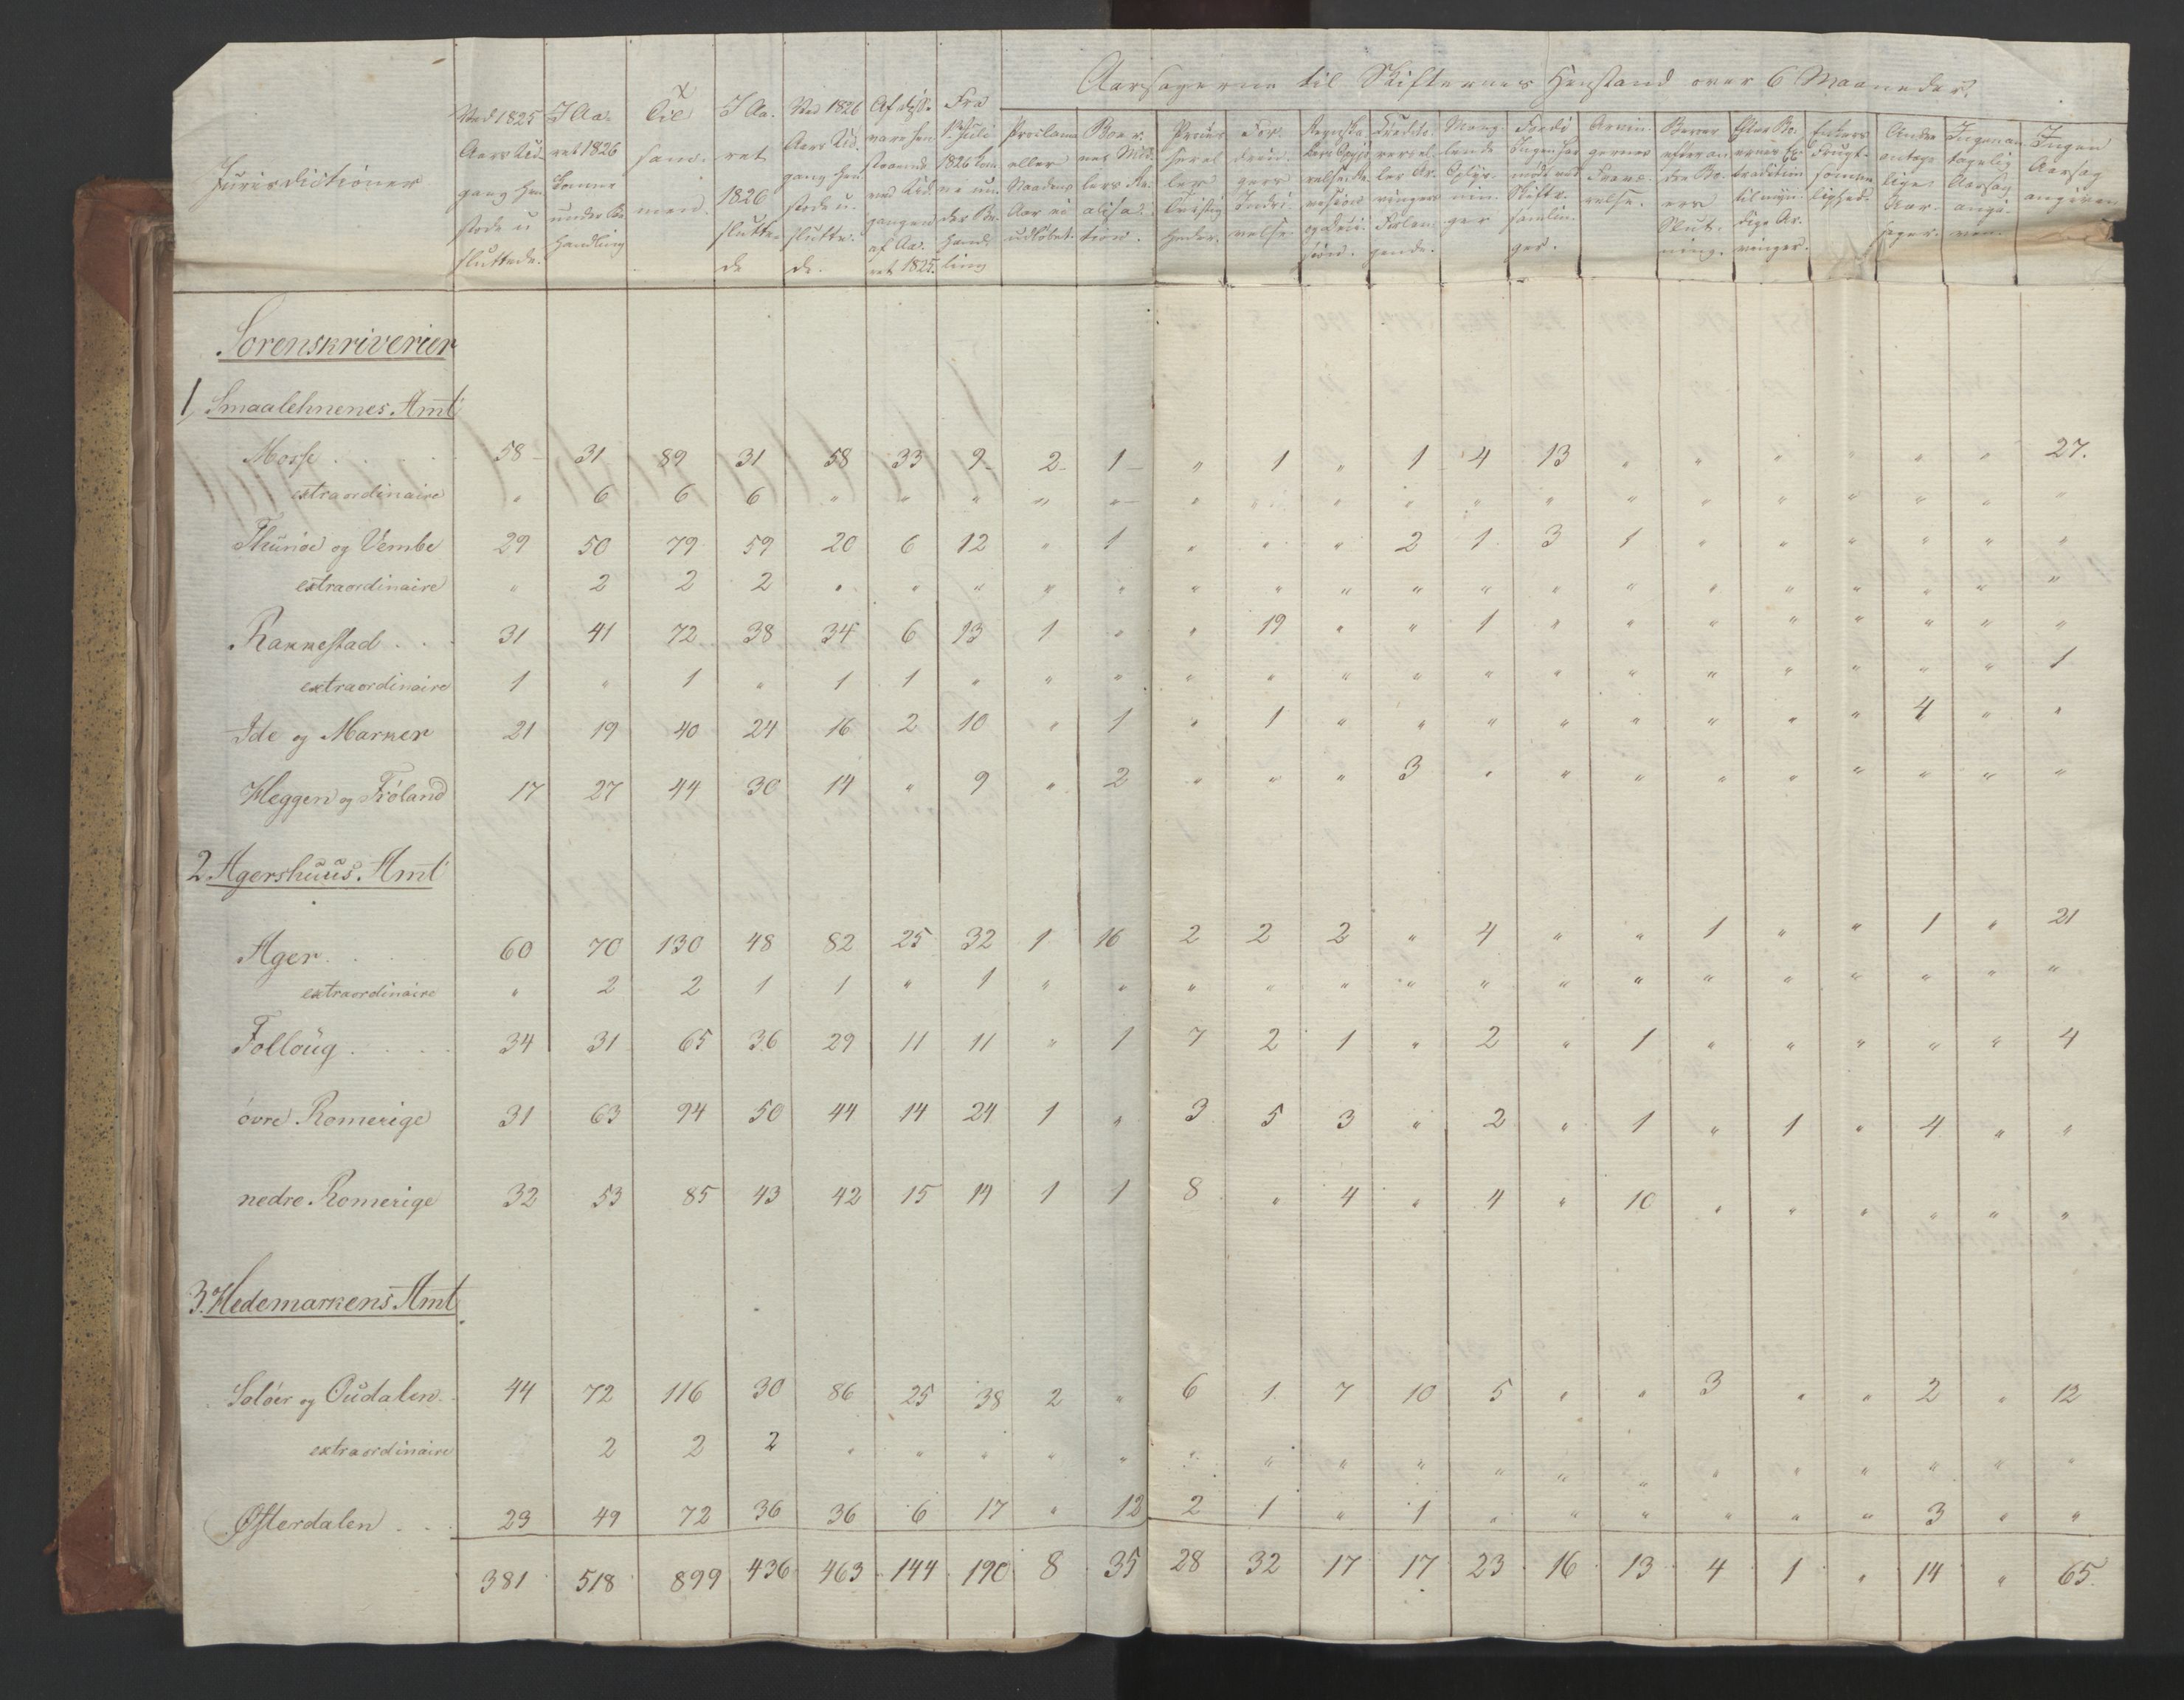 Aarsagerne til Skifternes Henstand over 6 Maaneder.
Jurisdictioner
Ved 1825 Aars Udgang henstode usluttede.
I Aaret 1826 komne under Behandling
Tilsammen.
I Aaret 1826 sluttede
Ved 1826 Aars Udgang henstode usluttede.
Af disse vare henstaaende ved Udgangen af Aaret 1825.
Fra 1ste Juli 1826 komne under Behandling
Proclama eller Naadens Aar ei udløbet.
Boernes Midlers Realisation.
Arvingernes Fraværelse.
Enkers Frugtsommelighed.
Andre antagelige Aarsager.
Ingen antagelig Aarsag angiven.
Ingen Aarsag angiven
Sorenskriverier
1 Smaalehnenes Amt
Mosse . . . . 58 31 89 31 58 33 9 2 1 " 1 " 1 4 13 " " " " " " 27.
extraordinaire " 6 6 6 " " " " " " " " " " " " " " " " " "
Thunøe og Vembe 29 50 79 59 20 6 12 " 1 " " " 2 1 3 1 " " " " " "
extraordinaire " 2 2 2 " " " " " " " " " " " " " " " " " "
Rakkestad . . . 31 41 72 38 34 6 13 1 " " 19 " " 1 " " " " " " " "
extraordinaire 1 " 1 " 1 1 " " " " " " " " " " " " " " " 1
Ide og Marker 21 19 40 24 16 2 10 " 1 " 1 " " " " " " " " 4 " "
Heggen og Frøland 17 27 44 30 14 " 9 " 2 " " " 3 " " " " " " " " "
2 Agershuus Amt
Ager . . . . 60 70 130 48 82 25 32 1 16 2 2 2 " 4 " " 1 " " 1 " 21
extraordinaire " 2 2 1 1 " 1 " " " " " " " " " " " " " " "
Folloug . . . . 34 31 65 36 29 11 11 " 1 7 2 1 " 2 " 1 " " " " " 4
øvre Romerige 31 63 94 50 44 14 24 1 " 3 5 3 " 2 " 1 " 1 " 4 " "
nedre Romerige 32 53 85 43 42 15 14 1 1 8 " 4 " 4 " 10 " " " " " "
3. Hedemarkens Amt
Soløer og Oudalen. 44 72 116 30 86 25 38 2 " 6 1 7 10 5 " " 3 " " 2 " 12
extraordinaire 2 2 2 " " " " " " " " " " " " " " " " " "
Østerdalen . . . 23 49 72 36 36 6 17 " 12 2 1 " 1 " " " " " " 3 " "
381 518 899 436 463 144 190 8 35 28 32 17 17 23 16 13 4 1 " 14 " 65.